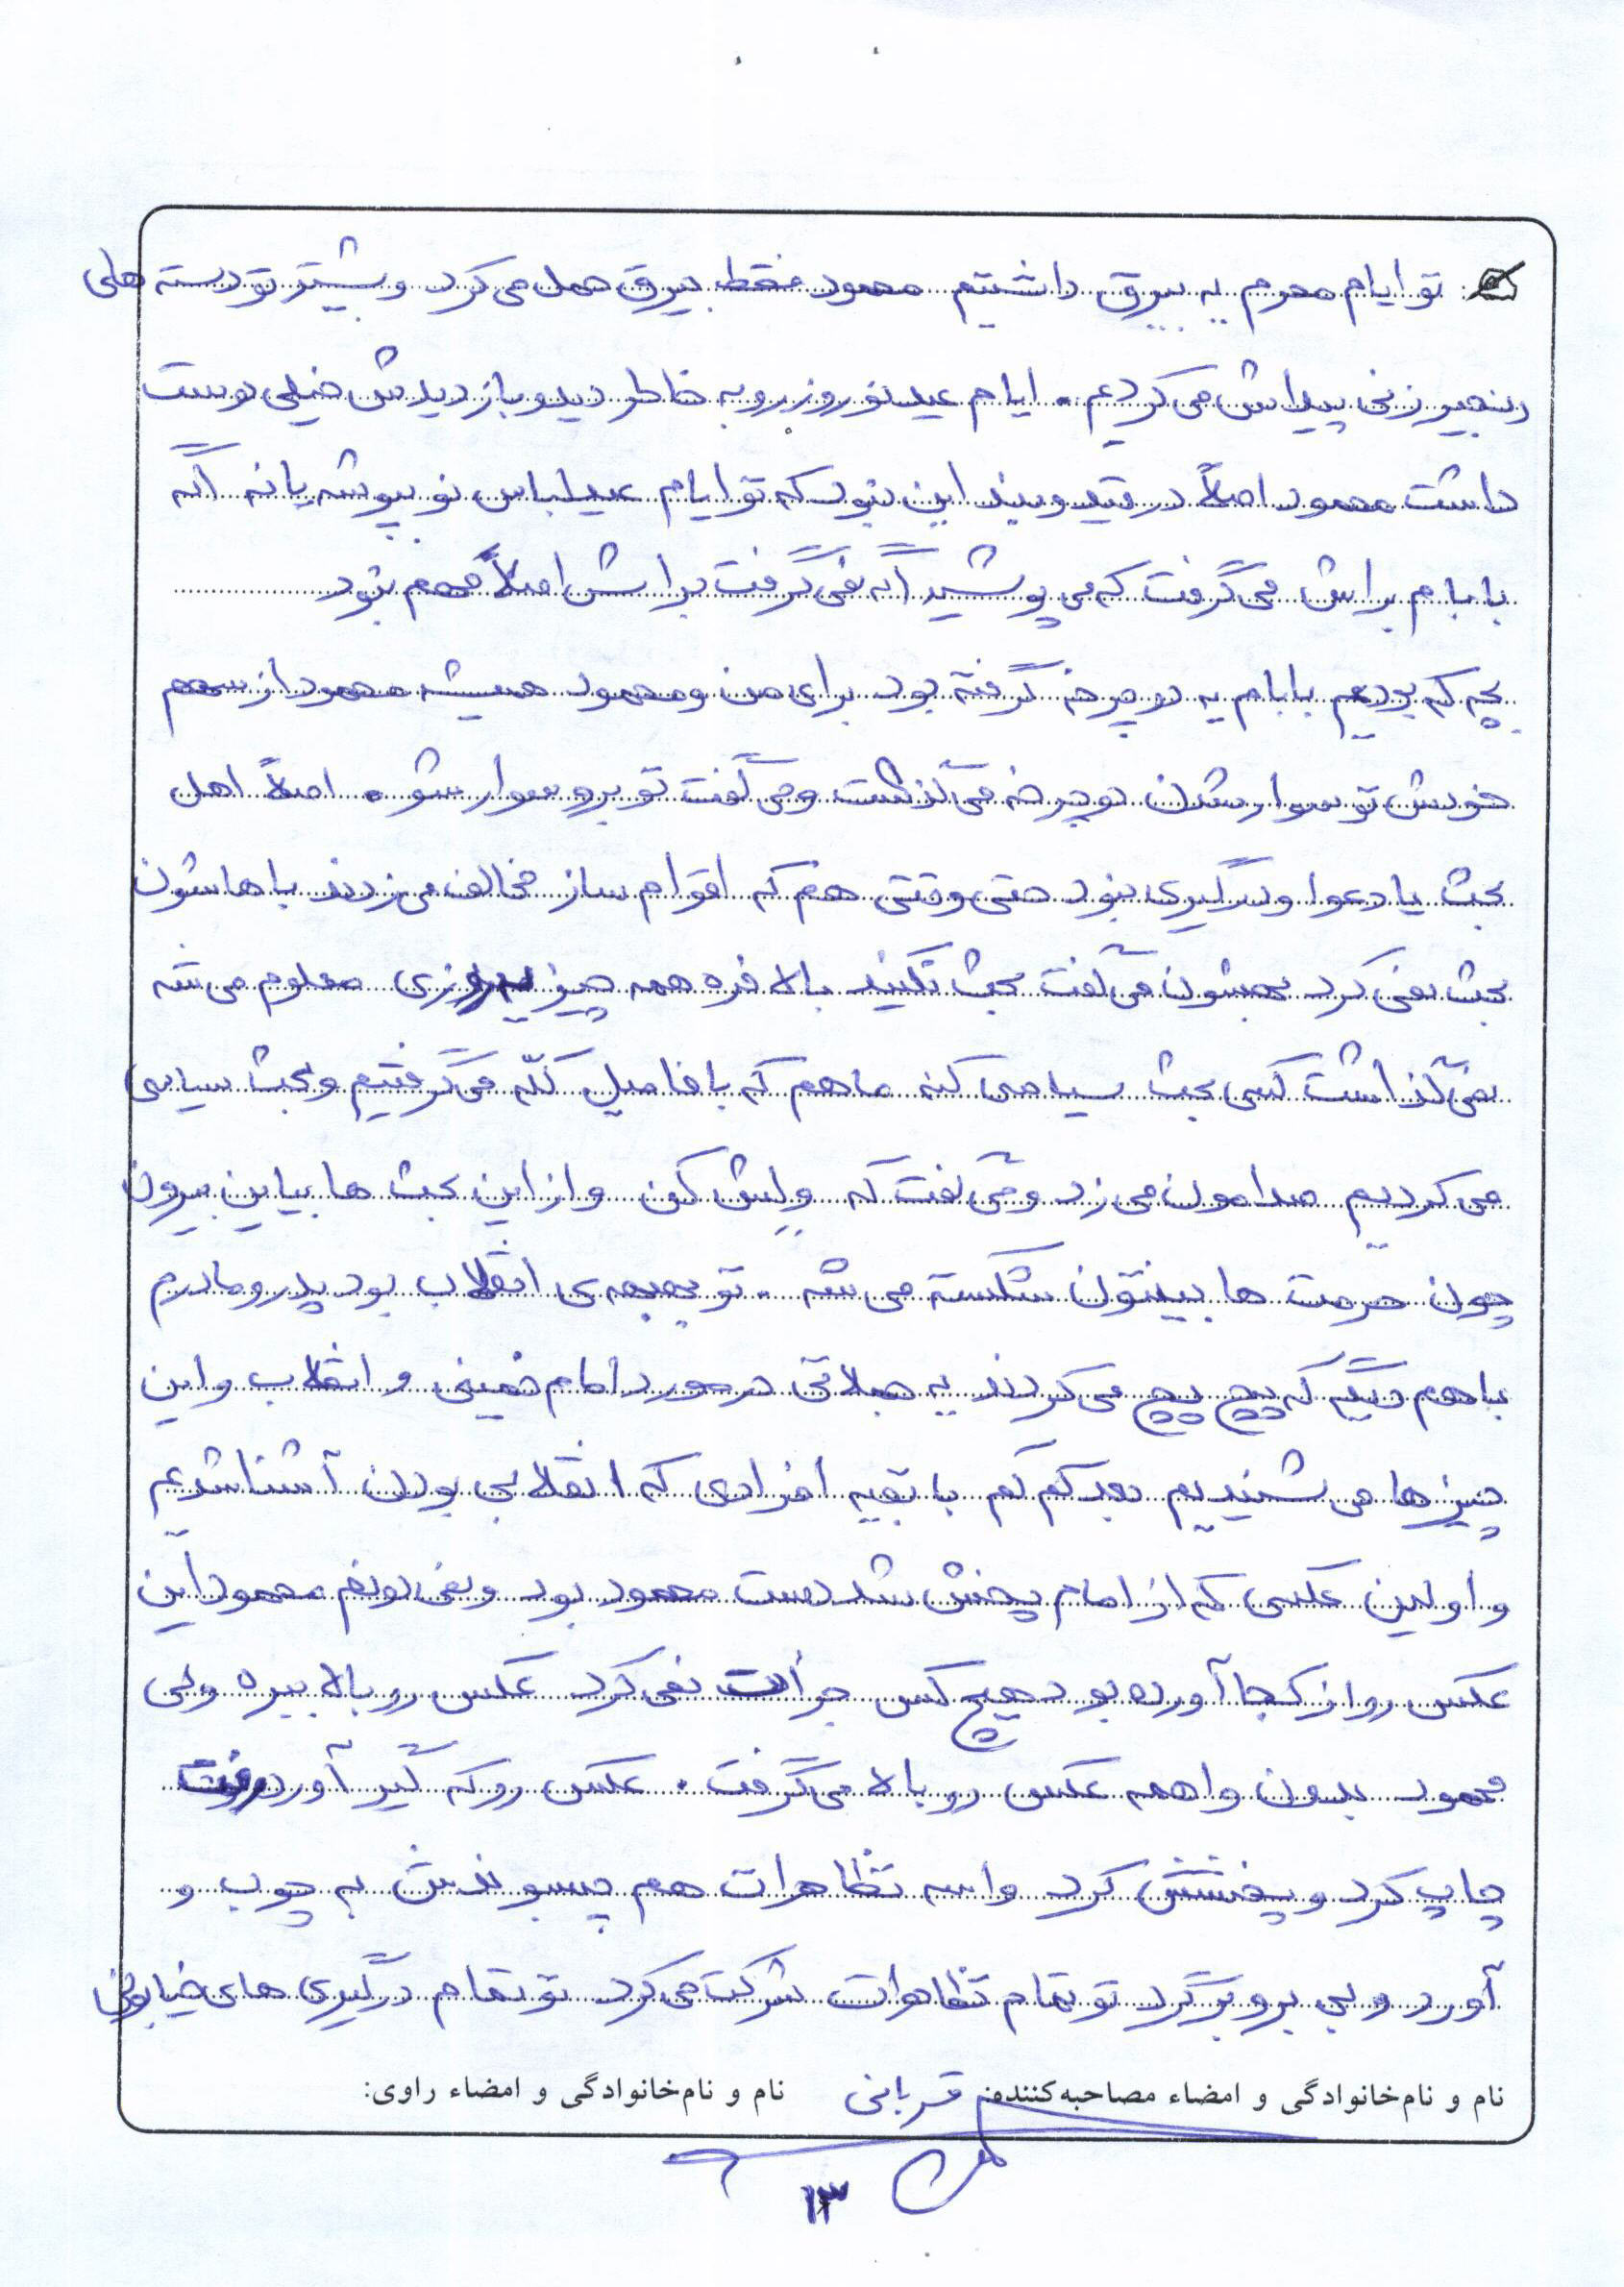 تو ایام محرم یه بیرق داشتیم محمود فقط بیرق حمل می کرد و بیشتر تو دسته های
زنجیر زنی پیداش می کردیم. ایام عید نوروز رو به خاطر دید و بازدیدش خیلی دوست
داشت محمود اصلاً در قید و بند این نبود که تو ایام عید لباس نو بپوشه یا نه اگه
بابام براش می گرفت که می پوشید اگه نمی گرفت براش اصلاً مهم نبود
بچه که بودیم بابام یه دوچرخه گرفته بود برای من و محمود همیشه محمود از سهم
خودش تو سوار شدن دوچرخه می گذشت و می گفت تو برو سوار شو. اصلاً اهل
بحث یا دعوا و درگیری نبود حتی وقتی هم که اقوام ساز مخالف می زدند باهاشون
بحث نمی کرد بهشون می گفت بحث نکنید بالاخره همه چیز یه روزی معلوم می شه
نمی گذاشت کسی بحث سیاسی کنه ما هم که با فامیل کله می گرفتیم و بحث سیاسی
می کردیم صدامون می زد و می گفت که ولش کن و از این بحث ها بیاین بیرون
چون حرمت ها بینتون شکسته می شه. تو بحبحه ی انقلاب بود پدر و مادرم
با هم دیگه که پچ پچ می کردند یه جملاتی در مورد امام خمینی و انقلاب و این
چیزها می شنیدیم بعد کم کم با بقیه افرادی که انقلابی بودن آشنا شدیم
و اولین عکسی که از امام پخش شد دست محمود بود و نمی دونم محمود این
عکس رو از کجا آورده بود هیچ کس جرأت نمی کرد عکس رو بالا ببره ولی
محمود بدون واهمه عکس رو بالا می گرفت. عکس رو که گیر آورد رفت
چاپ کرد و پخشش کرد واسه تظاهرات هم چسبوندش به چوب و
آورد و بی برو برگرد تو تمام تظاهرات شرکت می کرد تو تمام درگیری های خیابونی
نام و نام خانوادگی و امضاء مصاحبه کننده: قربانی نام و نام خانوادگی و امضاء راوی:
۱۳